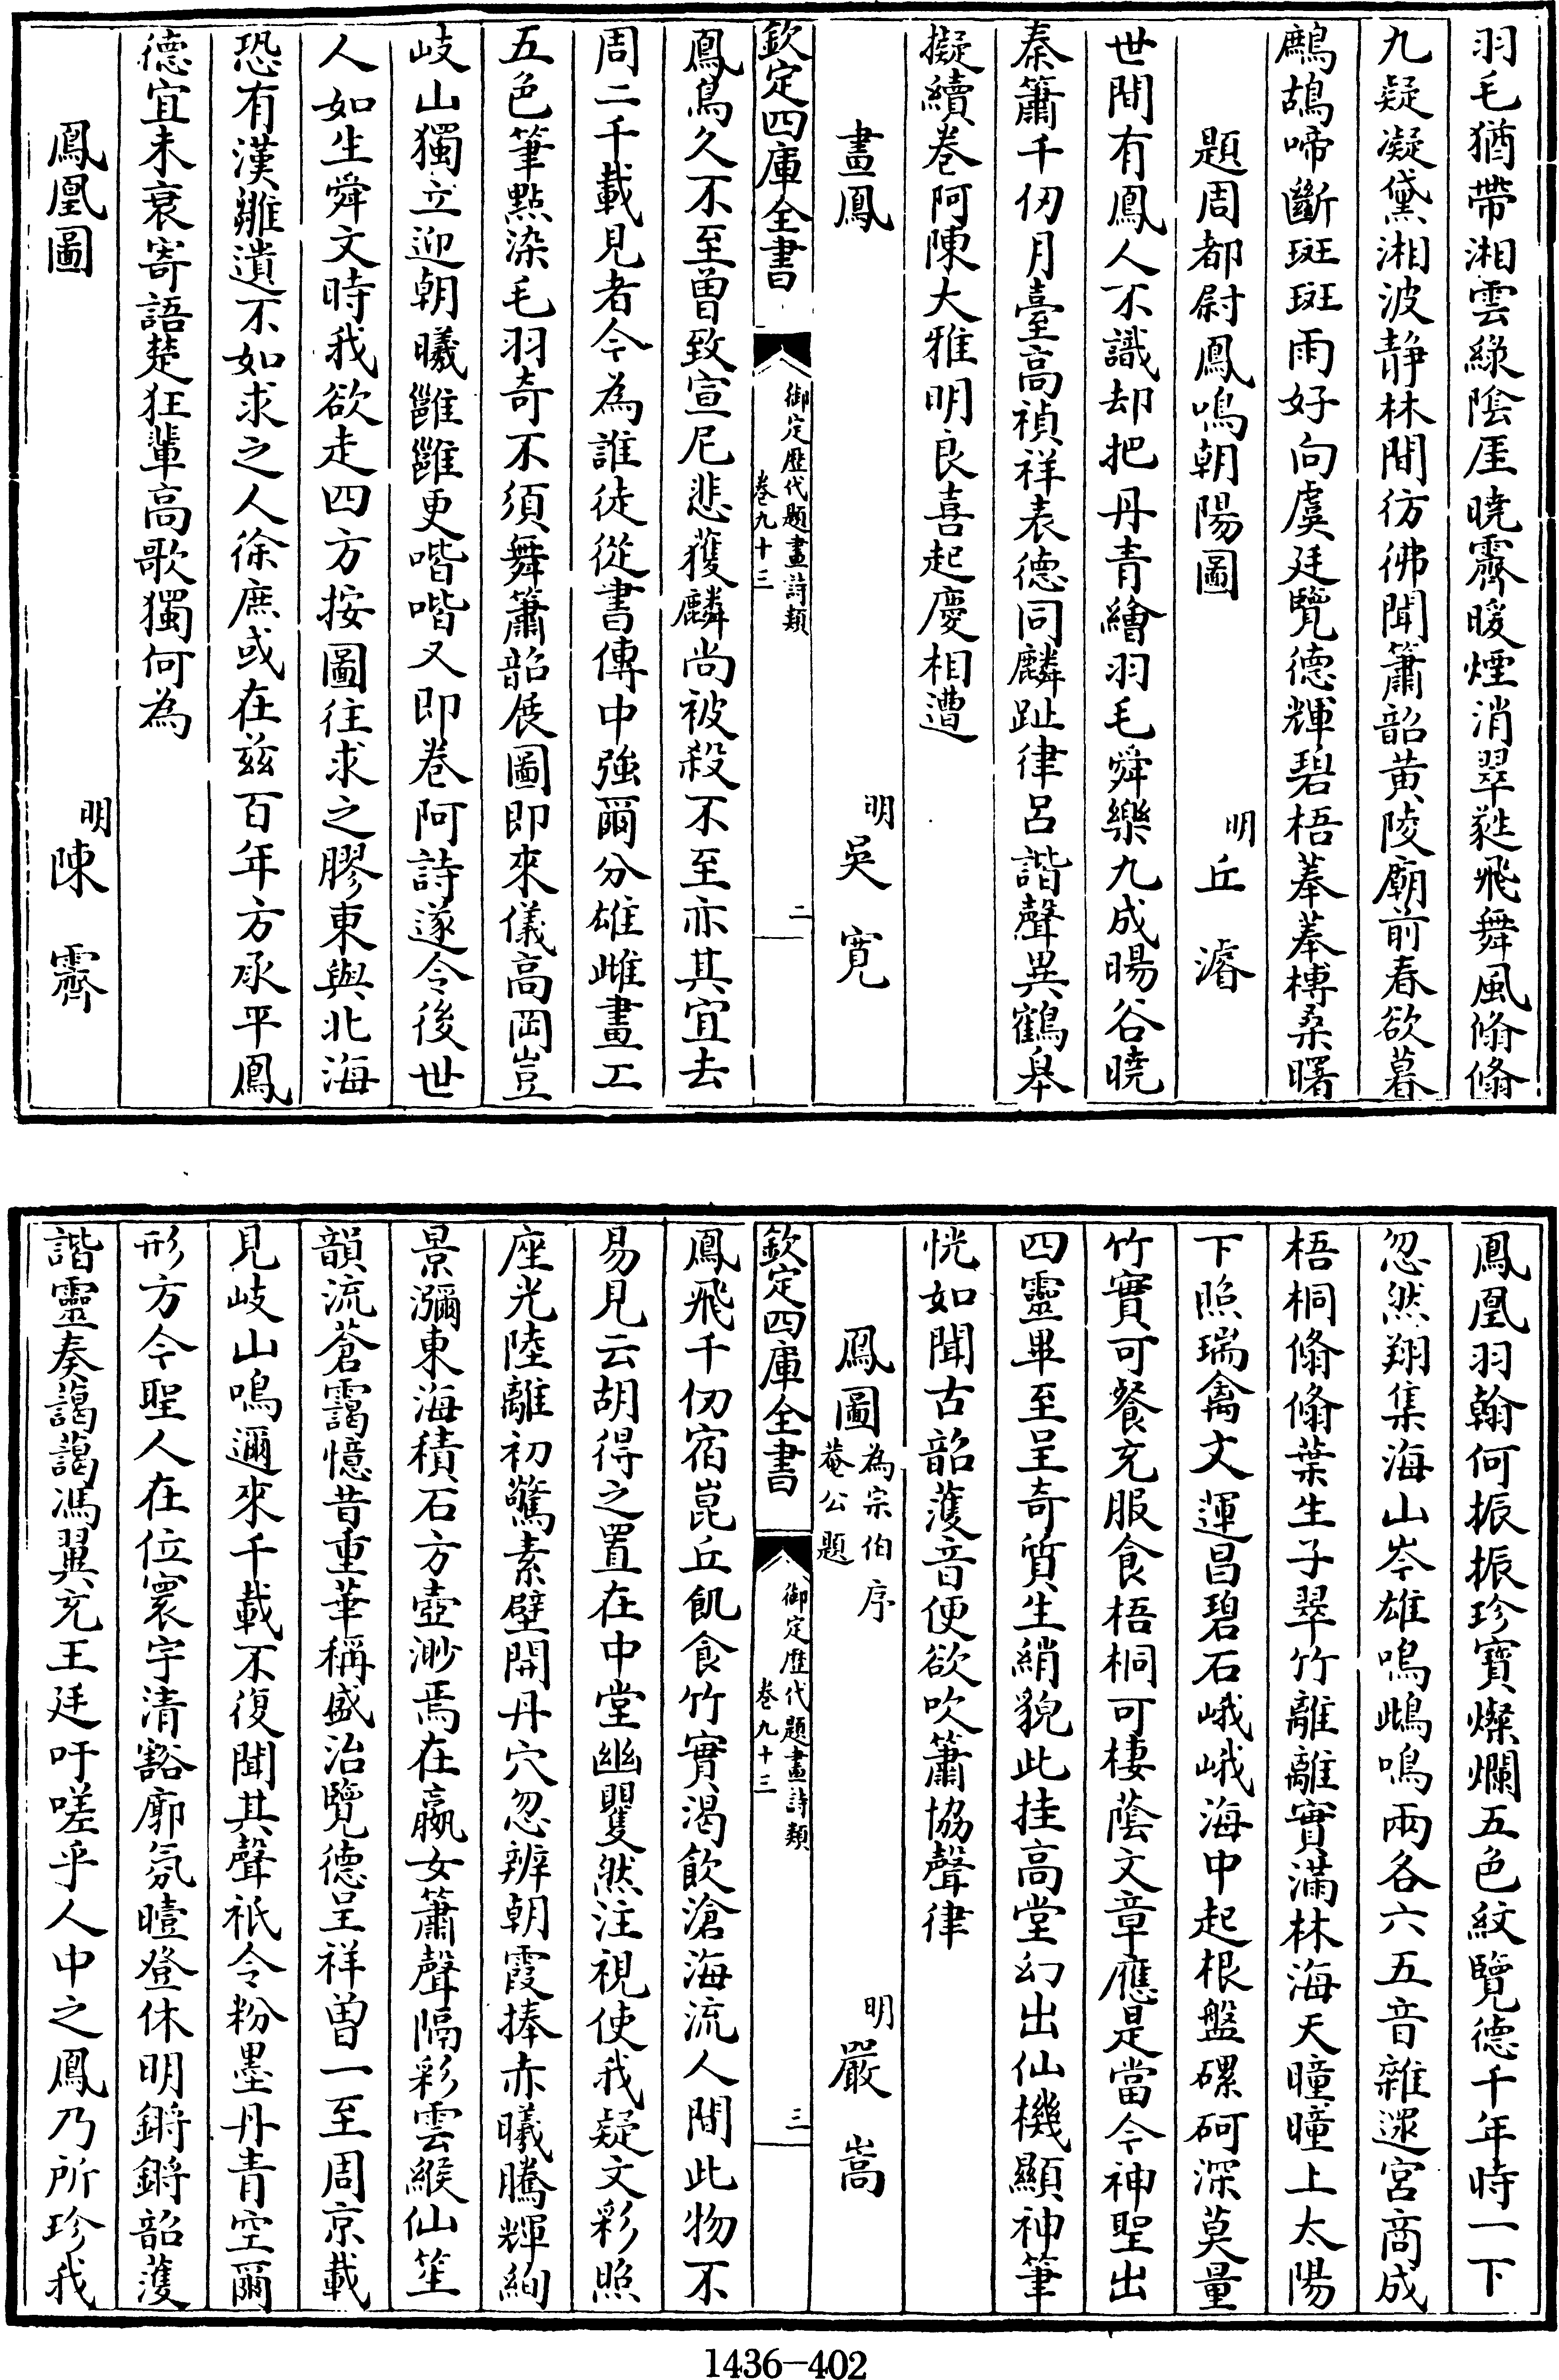 羽毛猶帶湘雲綠陰厓曉霽暖煙消翠蕤飛舞風翛翛
九疑凝黛湘波静林間彷彿聞簫韶黄陵廟前春欲暮
鷓鴣啼斷斑斑雨好向虞廷覽德輝碧梧菶菶榑桑曙
題周都尉鳳鳴朝陽圖 明丘濬
世間有鳳人不識却把丹青繪羽毛舜樂九成暘谷曉
秦簫千仞月臺高禎祥表德同麟趾律呂諧聲異鶴皋
擬續卷阿陳大雅明良喜起慶相遭
畫鳳 明吳寬
欽定四庫全書 御定歷代題畫詩類 卷九十三 二
鳳鳥久不至曽致宣尼悲獲麟尚被殺不至亦其宜去
周二千載見者今為誰徒從書傳中強爾分雄雌畫工
五色筆點染毛羽奇不須舞簫韶展圖即來儀高岡豈
岐山獨立迎朝曦雝雝更喈喈又即卷阿詩遂令後世
人如生舜文時我欲走四方按圖往求之膠東與北海
恐有漢雛遺不如求之人徐庶或在兹百年方承平鳳
德宜未衰寄語楚狂輩高歌獨何為
鳳凰圖 明陳霽
鳳凰羽翰何振振珍寶燦爛五色紋覽德千年時一下
忽然翔集海山岑雄鳴鴟鳴兩各六五音雜遝宮商成
梧桐翛翛葉生子翠竹離離實滿林海天曈曈上太陽
下照瑞禽文運昌碧石峨峨海中起根盤磥砢深莫量
竹實可餐充服食梧桐可棲蔭文章應是當今神聖出
四靈畢至呈奇質生綃貌此挂高堂幻出仙機顯神筆
恍如聞古韶濩音便欲吹簫協聲律
鳳圖 為宗伯序菴公題 明嚴嵩
欽定四庫全書 御定歷代題畫詩類 卷九十三 三
鳳飛千仞宿崑丘飢食竹實渴飲滄海流人間此物不
易見云胡得之置在中堂幽矍然注視使我疑文彩照
座光陸離初驚素壁開丹穴忽辨朝霞捧赤曦騰輝絢
景瀰東海積石方壺渺焉在嬴女簫聲隔彩雲緱仙笙
韻流蒼靄憶昔重華稱盛治覽德呈祥曽一至周京載
見岐山鳴邇來千載不復聞其聲祇令粉墨丹青空爾
形方今聖人在位寰宇清豁廓氛曀登休明鏘鏘韶濩
諧靈奏藹藹馮翼充王廷吁嗟乎人中之鳳乃所珍我
1436-402